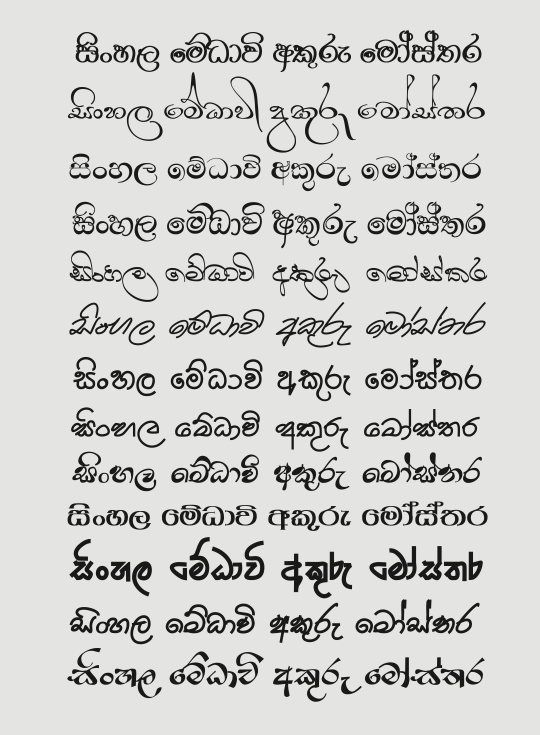 සිංහල මේධාවි අකුරු මෝස්තර
සිංහල මේධාවි අකුරු මෝස්තර
සිංහල මේධාවි අකුරු මෝස්තර
සිංහල මේධාවි අකුරු මෝස්තර
සිංහල මේධාවි අකුරු මෝස්තර
සිංහල මේධාවි අකුරු මෝස්තර
සිංහල මේධාවි අකුරු මෝස්තර
සිංහල මේධාවි අකුරු මෝස්තර
සිංහල මේධාවි අකුරු මෝස්තර
සිංහල මේධාවි අකුරු මෝස්තර
සිංහල මේධාවි අකුරු මෝස්තර
සිංහල මේධාවි අකුරු මෝස්තර
සිංහල මේධාවි අකුරු මෝස්තර